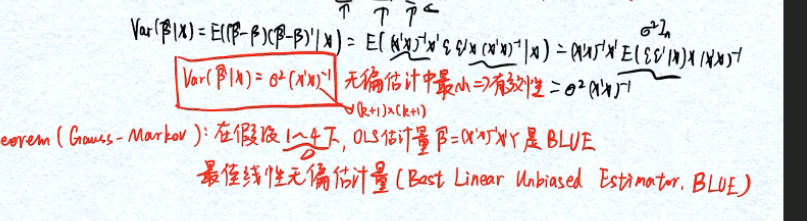 Var(β̂|X) = E((β̂-β)(β̂-β)'|X) = E((X'X)⁻¹X'εε'X(X'X)⁻¹|X) = (X'X)⁻¹X'E(εε'|X)X(X'X)⁻¹
σ²In
Var(β̂|X) = σ²(X'X)⁻¹ 无偏估计中最小⇒有效性 = σ²(X'X)⁻¹
(k+1)×(k+1)
eorem (Gauss-Markov): 在假设1~4下, OLS估计量β̂=(X'X)⁻¹X'Y是BLUE
最佳线性无偏估计量 (Best Linear Unbiased Estimator, BLUE)